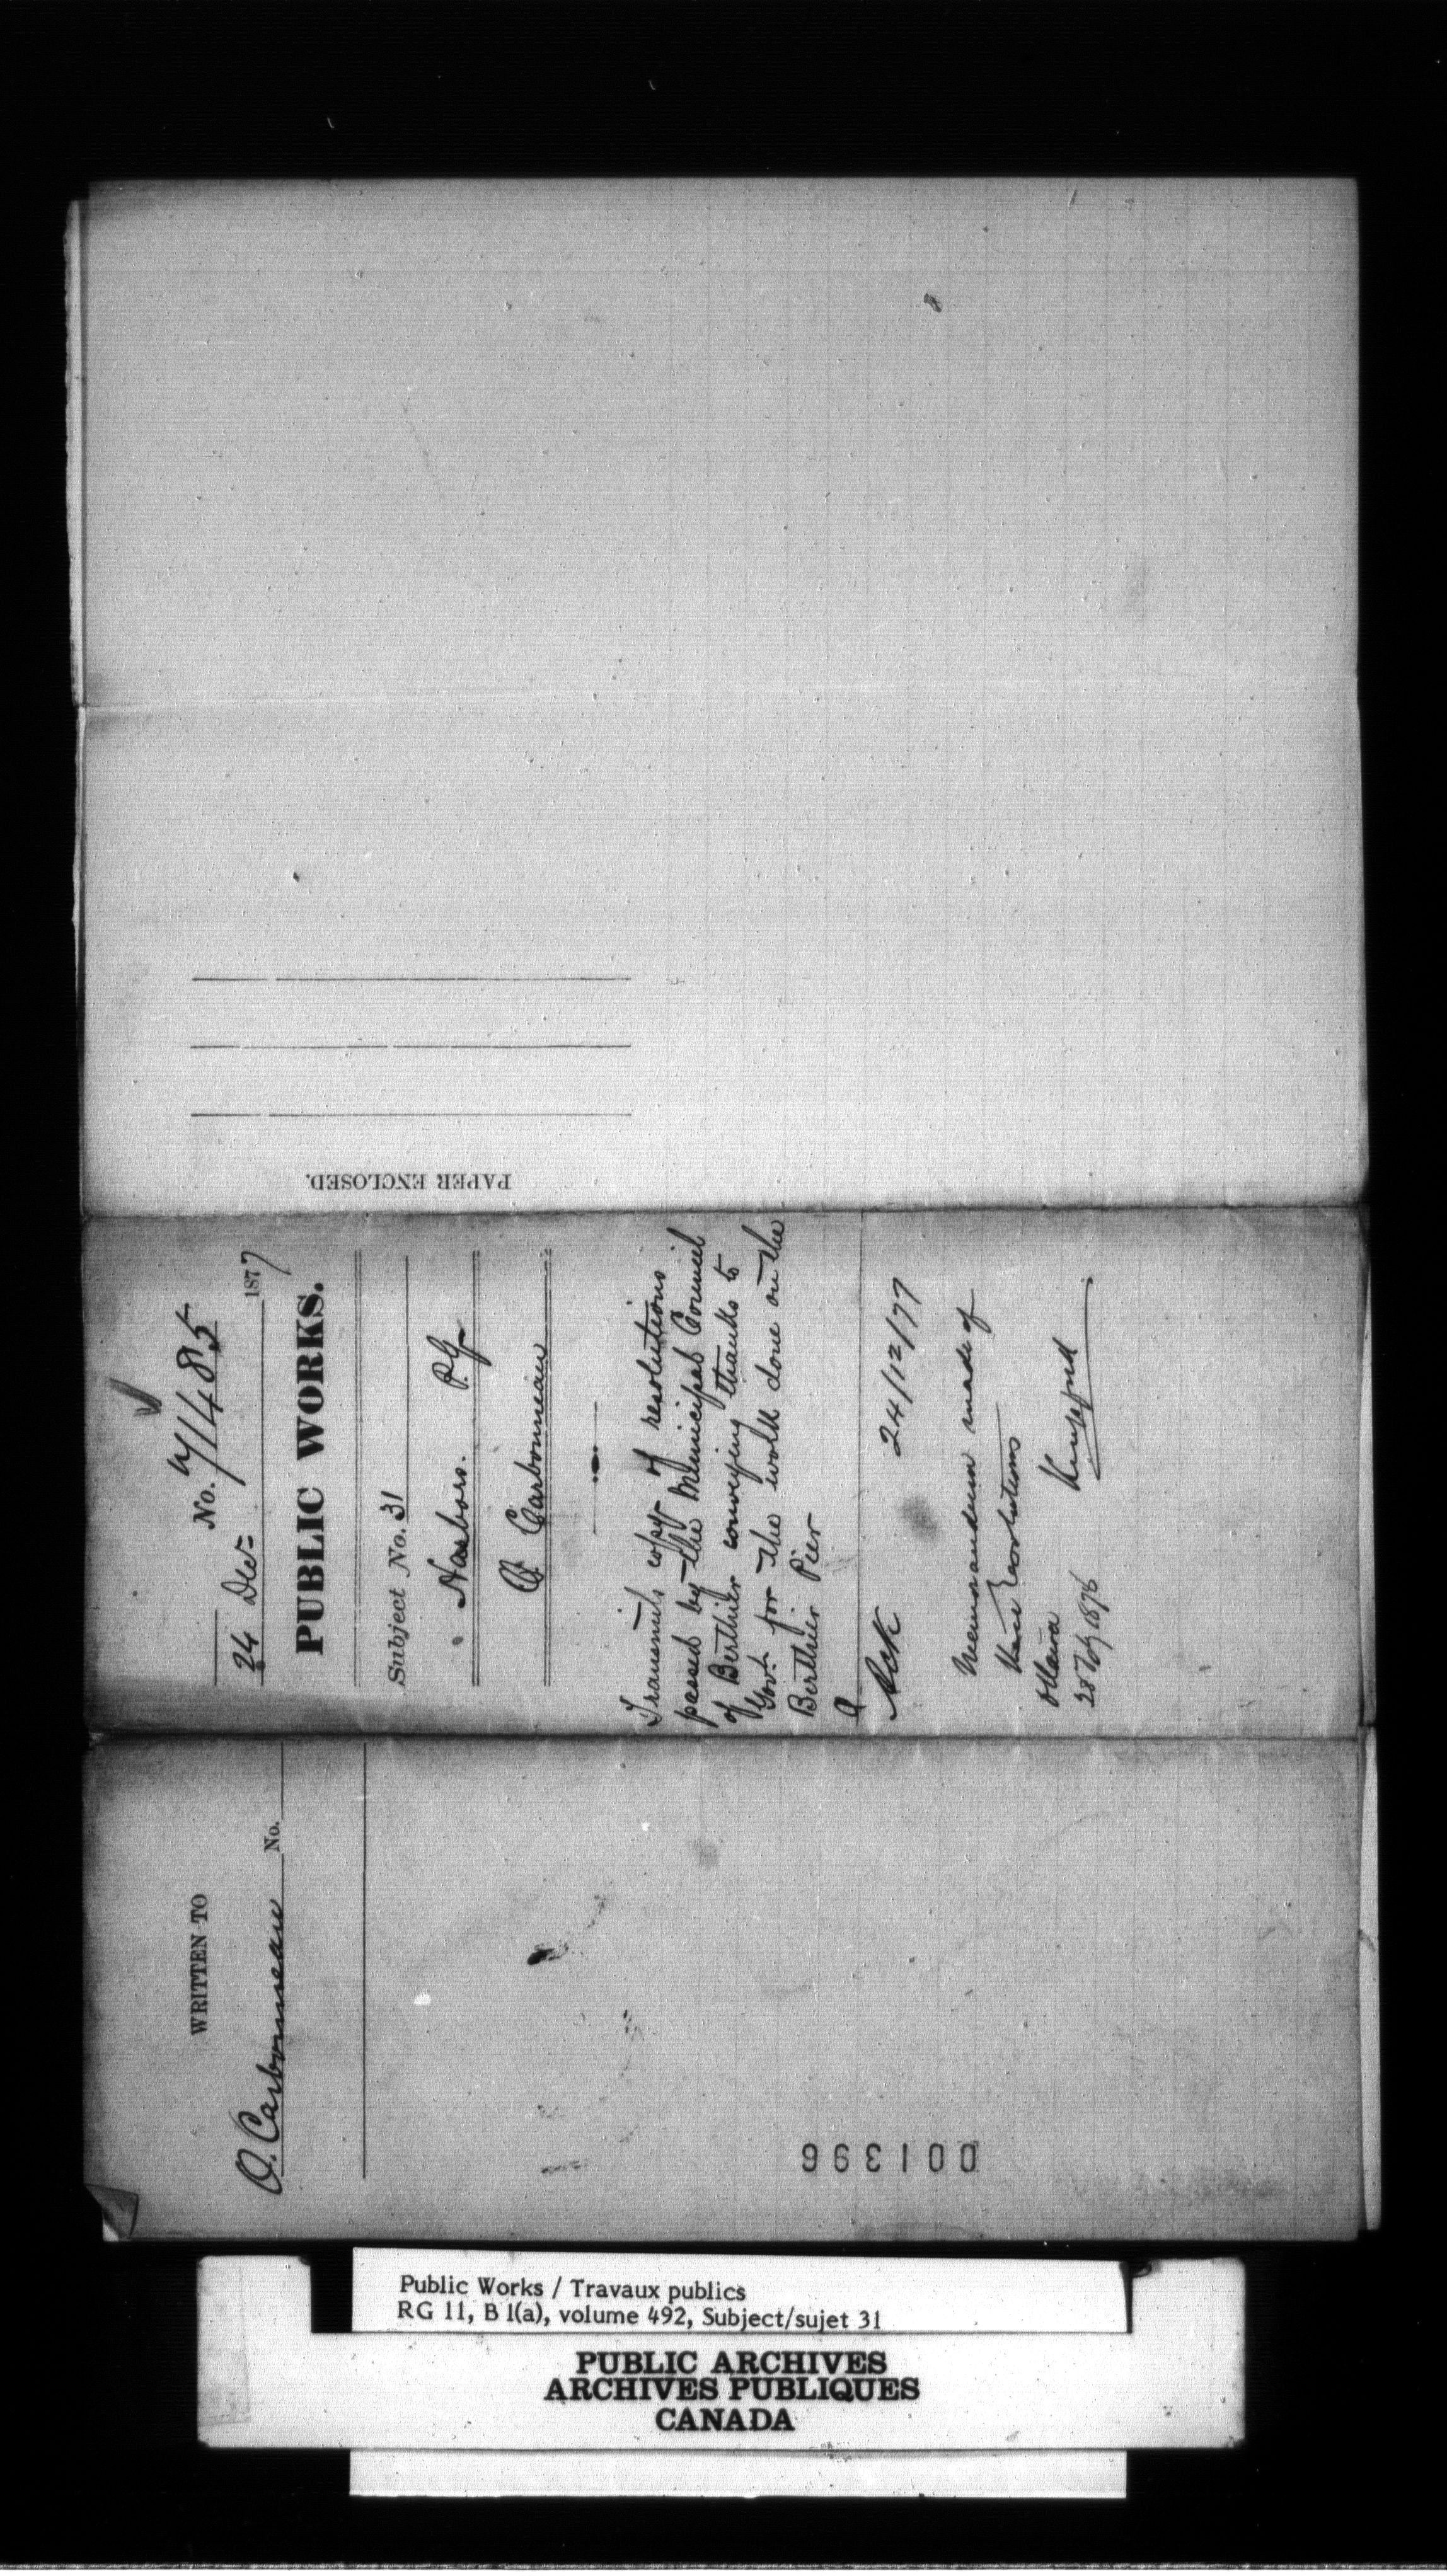 PAPER ENCLOSED.
No. 71485
24 Dec= 1877
PUBLIC WORKS.
Subject No. 31
Harbors. P.Q
O Carbonneau
Transmits copy of resolutions
passed by the Municipal Council
of Berthier conveying thanks to
Govt for the work done on the
Berthier Pier
Ack 24/12/77
Memorandum made of
these Resolutions
Ottawa
WRITTEN TO
O. Carbonneau No.
001396
Public Works / Travaux publics
RG 11, B 1(a), volume 492, Subject/sujet 31
PUBLIC ARCHIVES
ARCHIVES PUBLIQUES
CANADA